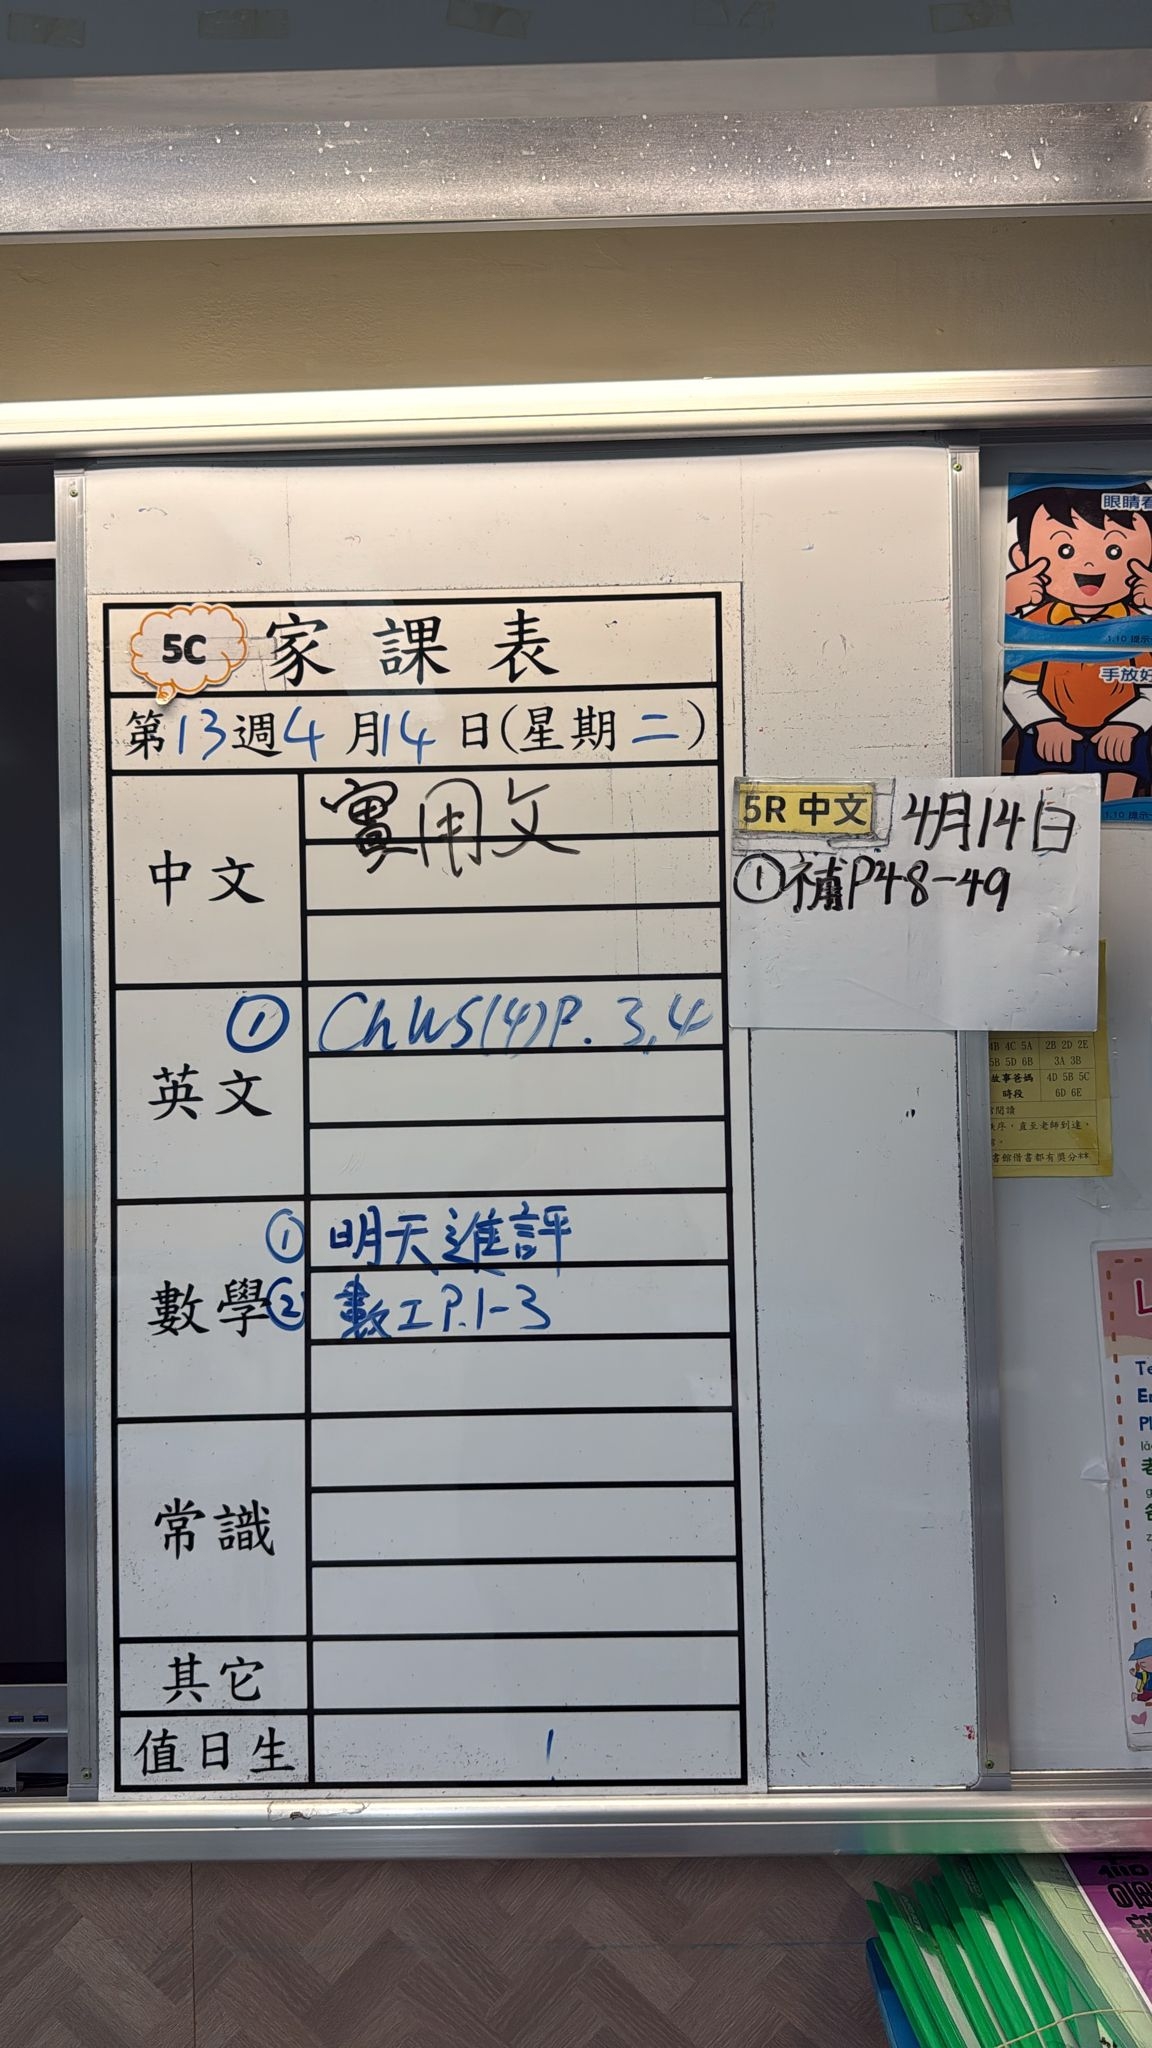 5C 家課表
第13週4月14日(星期二)
中文
實用文
英文
① Ch WS(4)P. 3,4
數學
① 明天進評
② 數工P.1-3
常識
其它
值日生
1
5R 中文 4月14日
①補P48-49
眼睛看
1.10 提示
手放好
1.10 提示
4B 4C 5A 2B 2D 2E
5B 5D 6B 3A 3B
故事爸媽 4D 5B 5C
時段 6D 6E
閱讀
序，直至老師到達，
書館借書都有獎分**
L
Te
En
Pl
lǎ
老